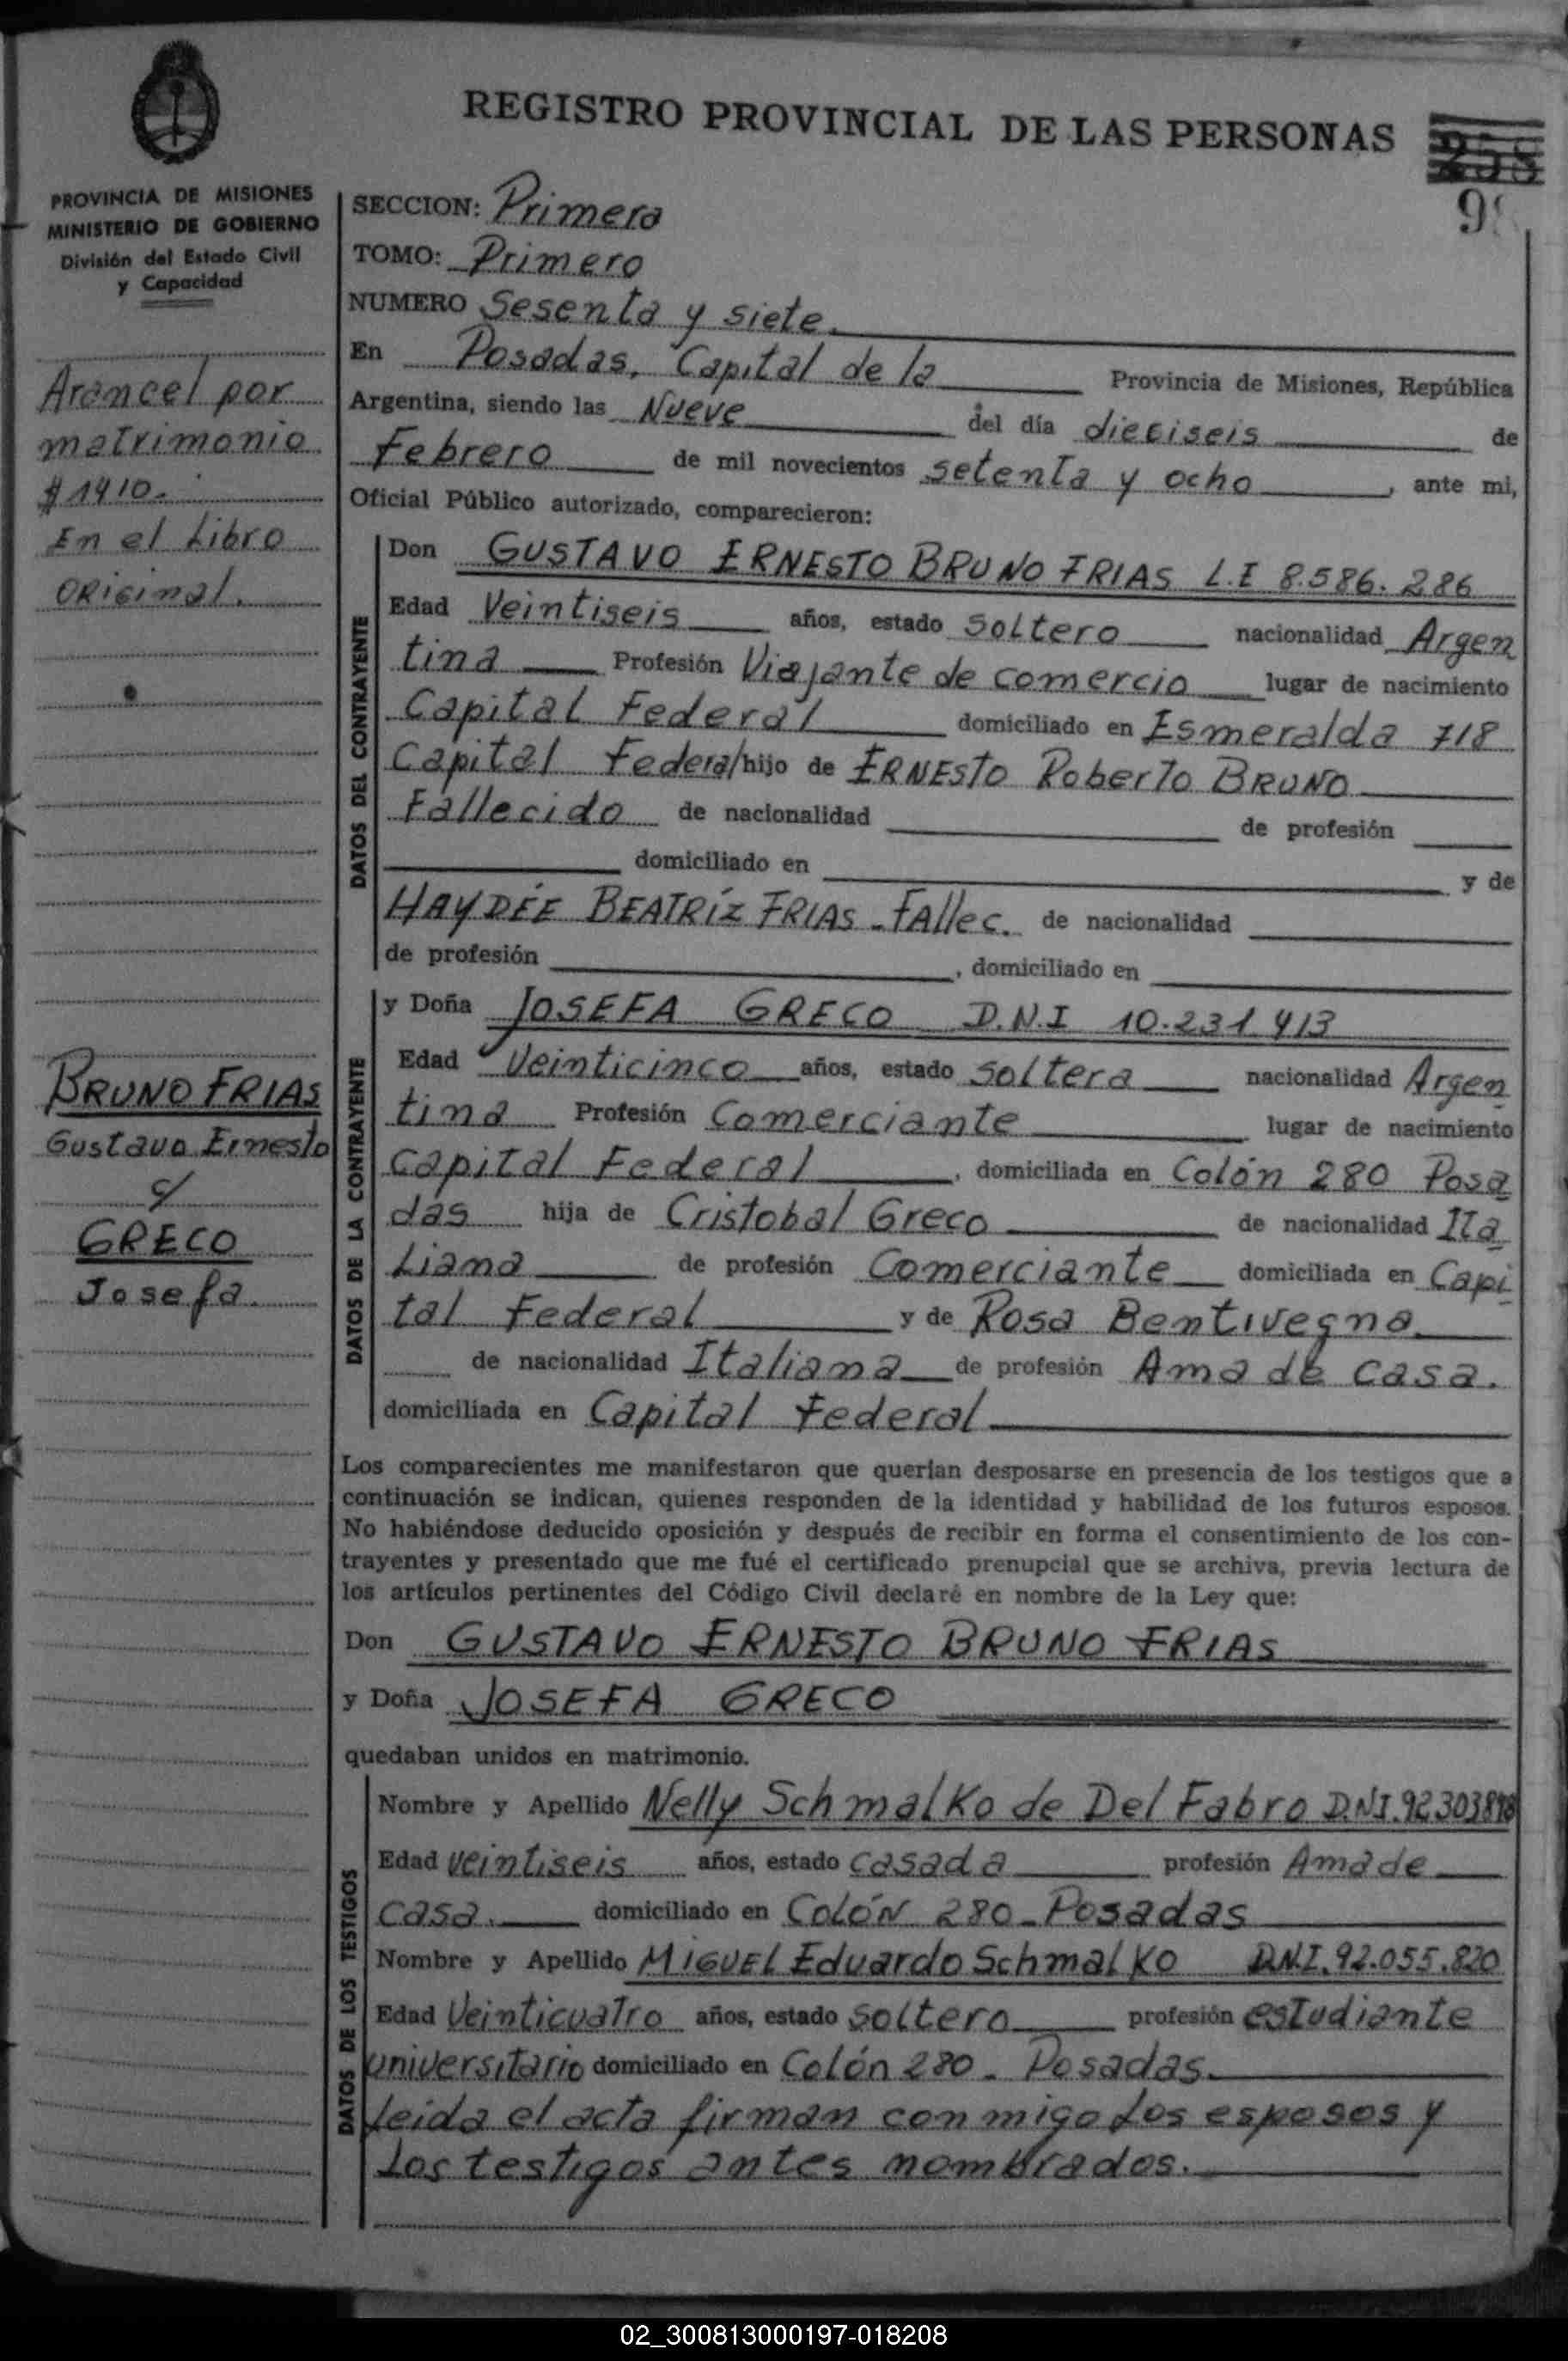 REGISTRO PROVINCIAL DE LAS PERSONAS
258
PROVINCIA DE MISIONES
MINISTERIO DE GOBIERNO
División del Estado Civil
y Capacidad
Arancel por
matrimonio
$ 1410.
En el Libro
original.
BRUNO FRIAS
Gustavo Ernesto
c/
GRECO
Josefa
SECCION: Primera
TOMO: Primero
NUMERO Sesenta y siete
En Posadas, Capital de la Provincia de Misiones, República
Argentina, siendo las Nueve del día dieciseis de
Febrero de mil novecientos setenta y ocho, ante mi,
Oficial Público autorizado, comparecieron:
DATOS DEL CONTRAYENTE
Don GUSTAVO ERNESTO BRUNO FRIAS L.E 8.586.286
Edad Veintiseis años, estado soltero nacionalidad Argen
tina Profesión Viajante de comercio lugar de nacimiento
Capital Federal domiciliado en Esmeralda 718
Capital Federal hijo de ERNESTO Roberto BRUNO
Fallecido de nacionalidad de profesión
domiciliado en y de
HAYDÉE BEATRÍZ FRIAS - FAllec. de nacionalidad
de profesión , domiciliado en
DATOS DE LA CONTRAYENTE
y Doña JOSEFA GRECO D.N.I 10.231.413
Edad Veinticinco años, estado soltera nacionalidad Argen
tina Profesión Comerciante lugar de nacimiento
Capital Federal, domiciliada en Colón 280 Posa
das hija de Cristobal Greco de nacionalidad Ita
Liana de profesión Comerciante domiciliada en Capi
tal Federal y de Rosa Bentivegna
de nacionalidad Italiana de profesión Ama de casa.
domiciliada en Capital Federal
Los comparecientes me manifestaron que querían desposarse en presencia de los testigos que a
continuación se indican, quienes responden de la identidad y habilidad de los futuros esposos.
No habiéndose deducido oposición y después de recibir en forma el consentimiento de los con-
trayentes y presentado que me fué el certificado prenupcial que se archiva, previa lectura de
los artículos pertinentes del Código Civil declaré en nombre de la Ley que:
Don GUSTAVO ERNESTO BRUNO FRIAS
y Doña JOSEFA GRECO
quedaban unidos en matrimonio.
DATOS DE LOS TESTIGOS
Nombre y Apellido Nelly Schmalko de Del Fabro D.N.I.
Edad veintiseis años, estado casada profesión Ama de
casa. domiciliado en Colón 280 - Posadas
Nombre y Apellido MIGUEL Eduardo Schmalko D.N.I. 92.055.820
Edad Veinticuatro años, estado soltero profesión estudiante
universitario domiciliado en Colón 280 - Posadas.
leida el acta firman conmigo Los esposos y
Los testigos antes nombrados.
02_300813000197-018208